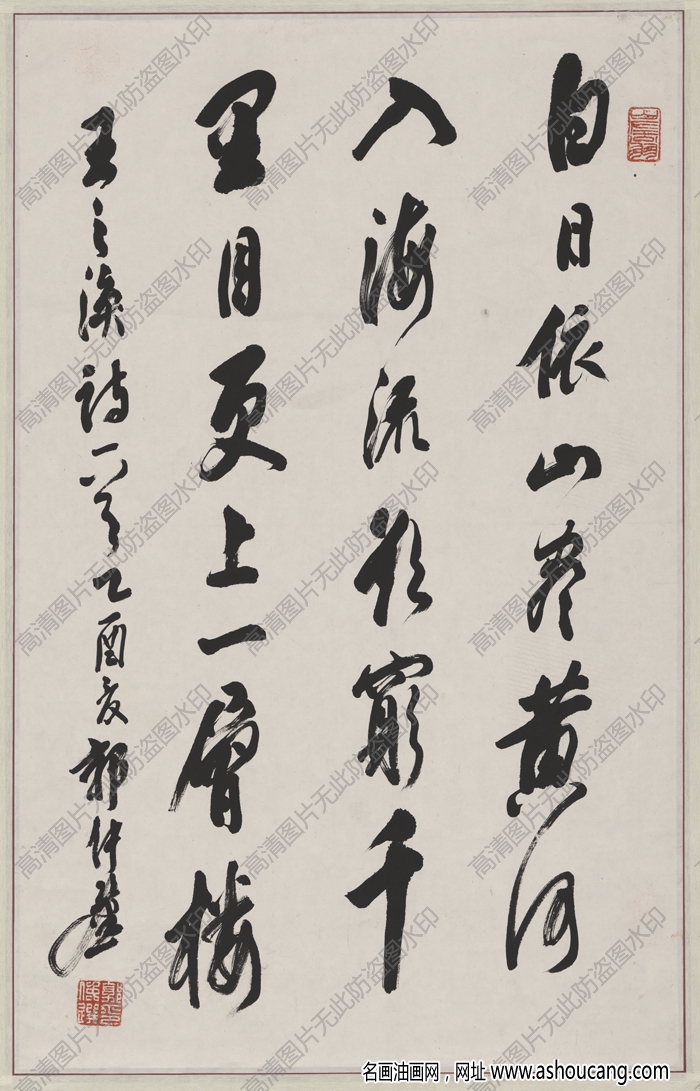 白日依山尽黄河
入海流欲窮千
里目更上一層楼
王之涣诗一首乙酉夏郭仲選
高清图片无此防盗图水印
名画油画网，网址 www.ashoucang.com